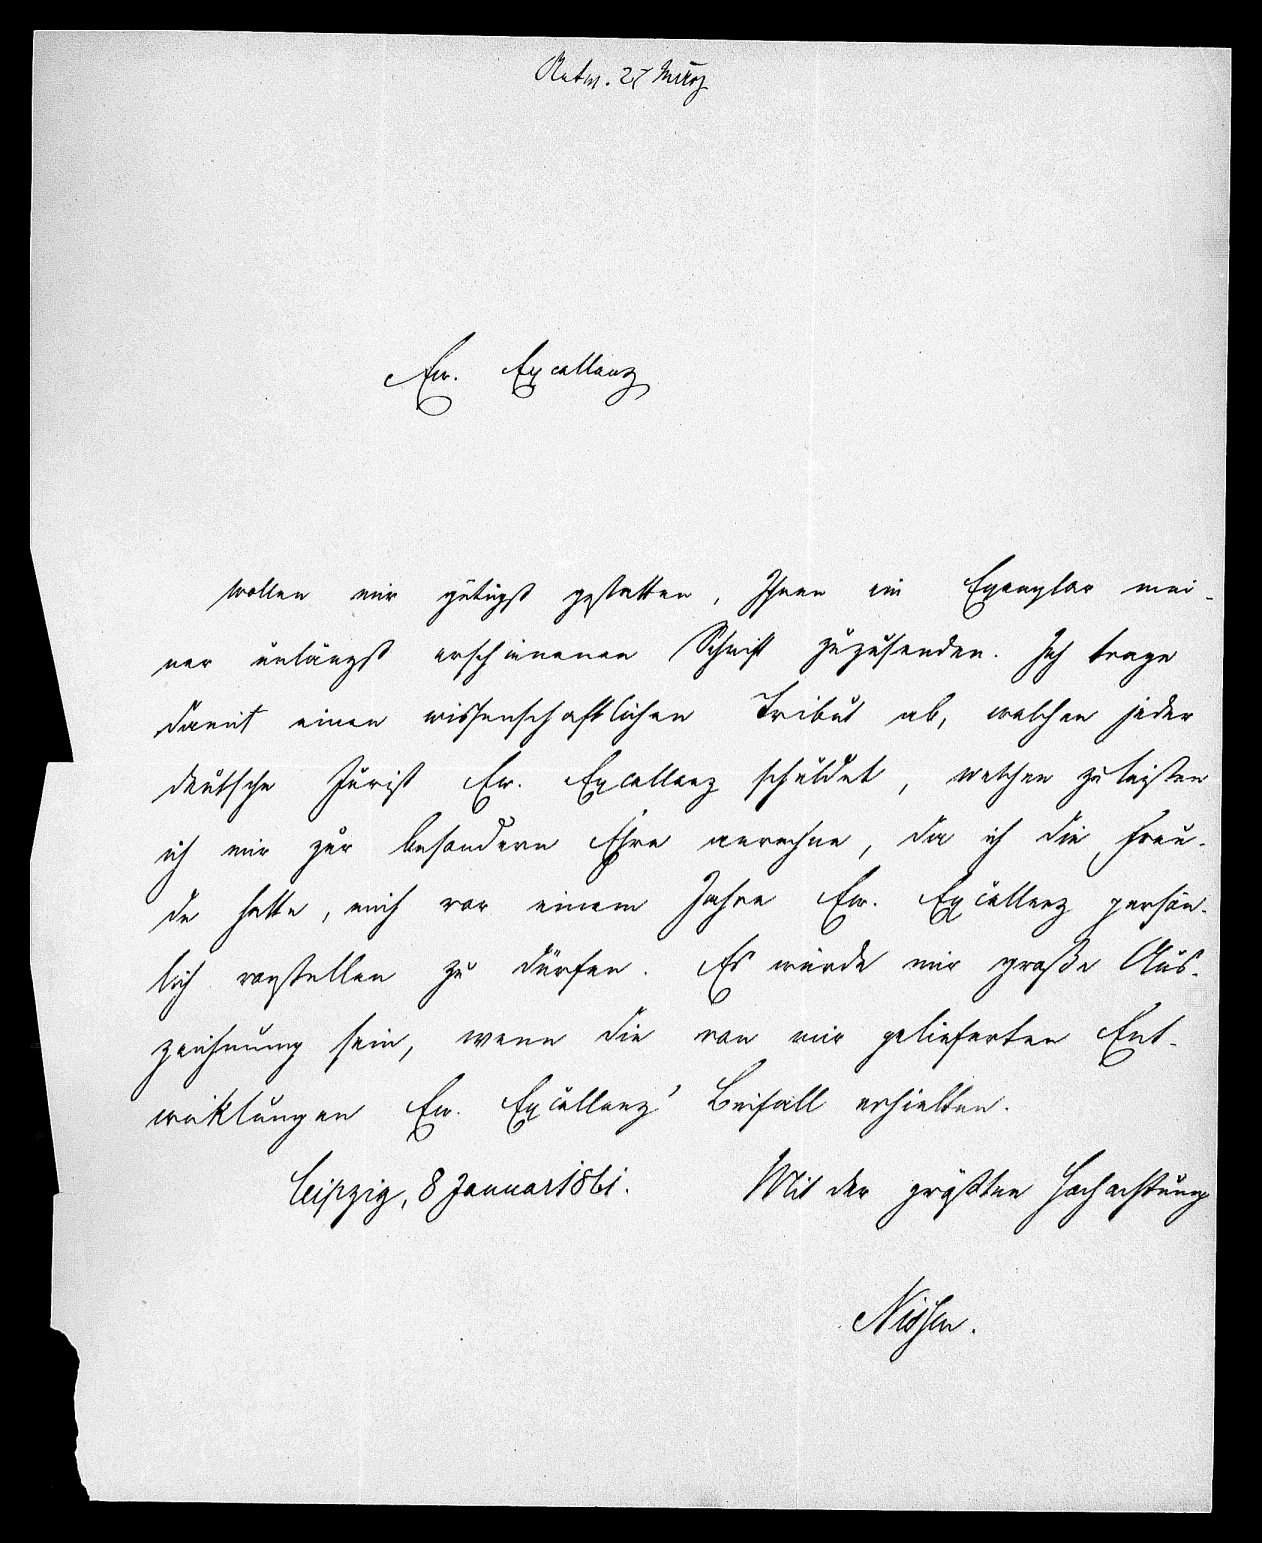 Antw. 27 März
Ew. Excellenz
wollen mir gütigst gestatten, Ihnen ein Exemplar mei-
ner unlängst erschienenen Schrift zuzusenden. Ich trage
damit einen wissenschaftlichen Tribut ab, welchen jeder
deutsche Jurist Ew. Excellenz schuldet, welchen zu leisten
ich mir zur besondern Ehre anrechne, da ich die Freu-
de hatte, mich vor einem Jahre Ew. Excellenz persön-
lich vorstellen zu dürfen. Es würde mir große Aus-
zeichnung sein, wenn die von mir gelieferten Ent-
wicklungen Ew. Excellenz' Beifall erhielten.
Leipzig, 8 Januar 1861. Mit der größten Hochachtung
Nissen.